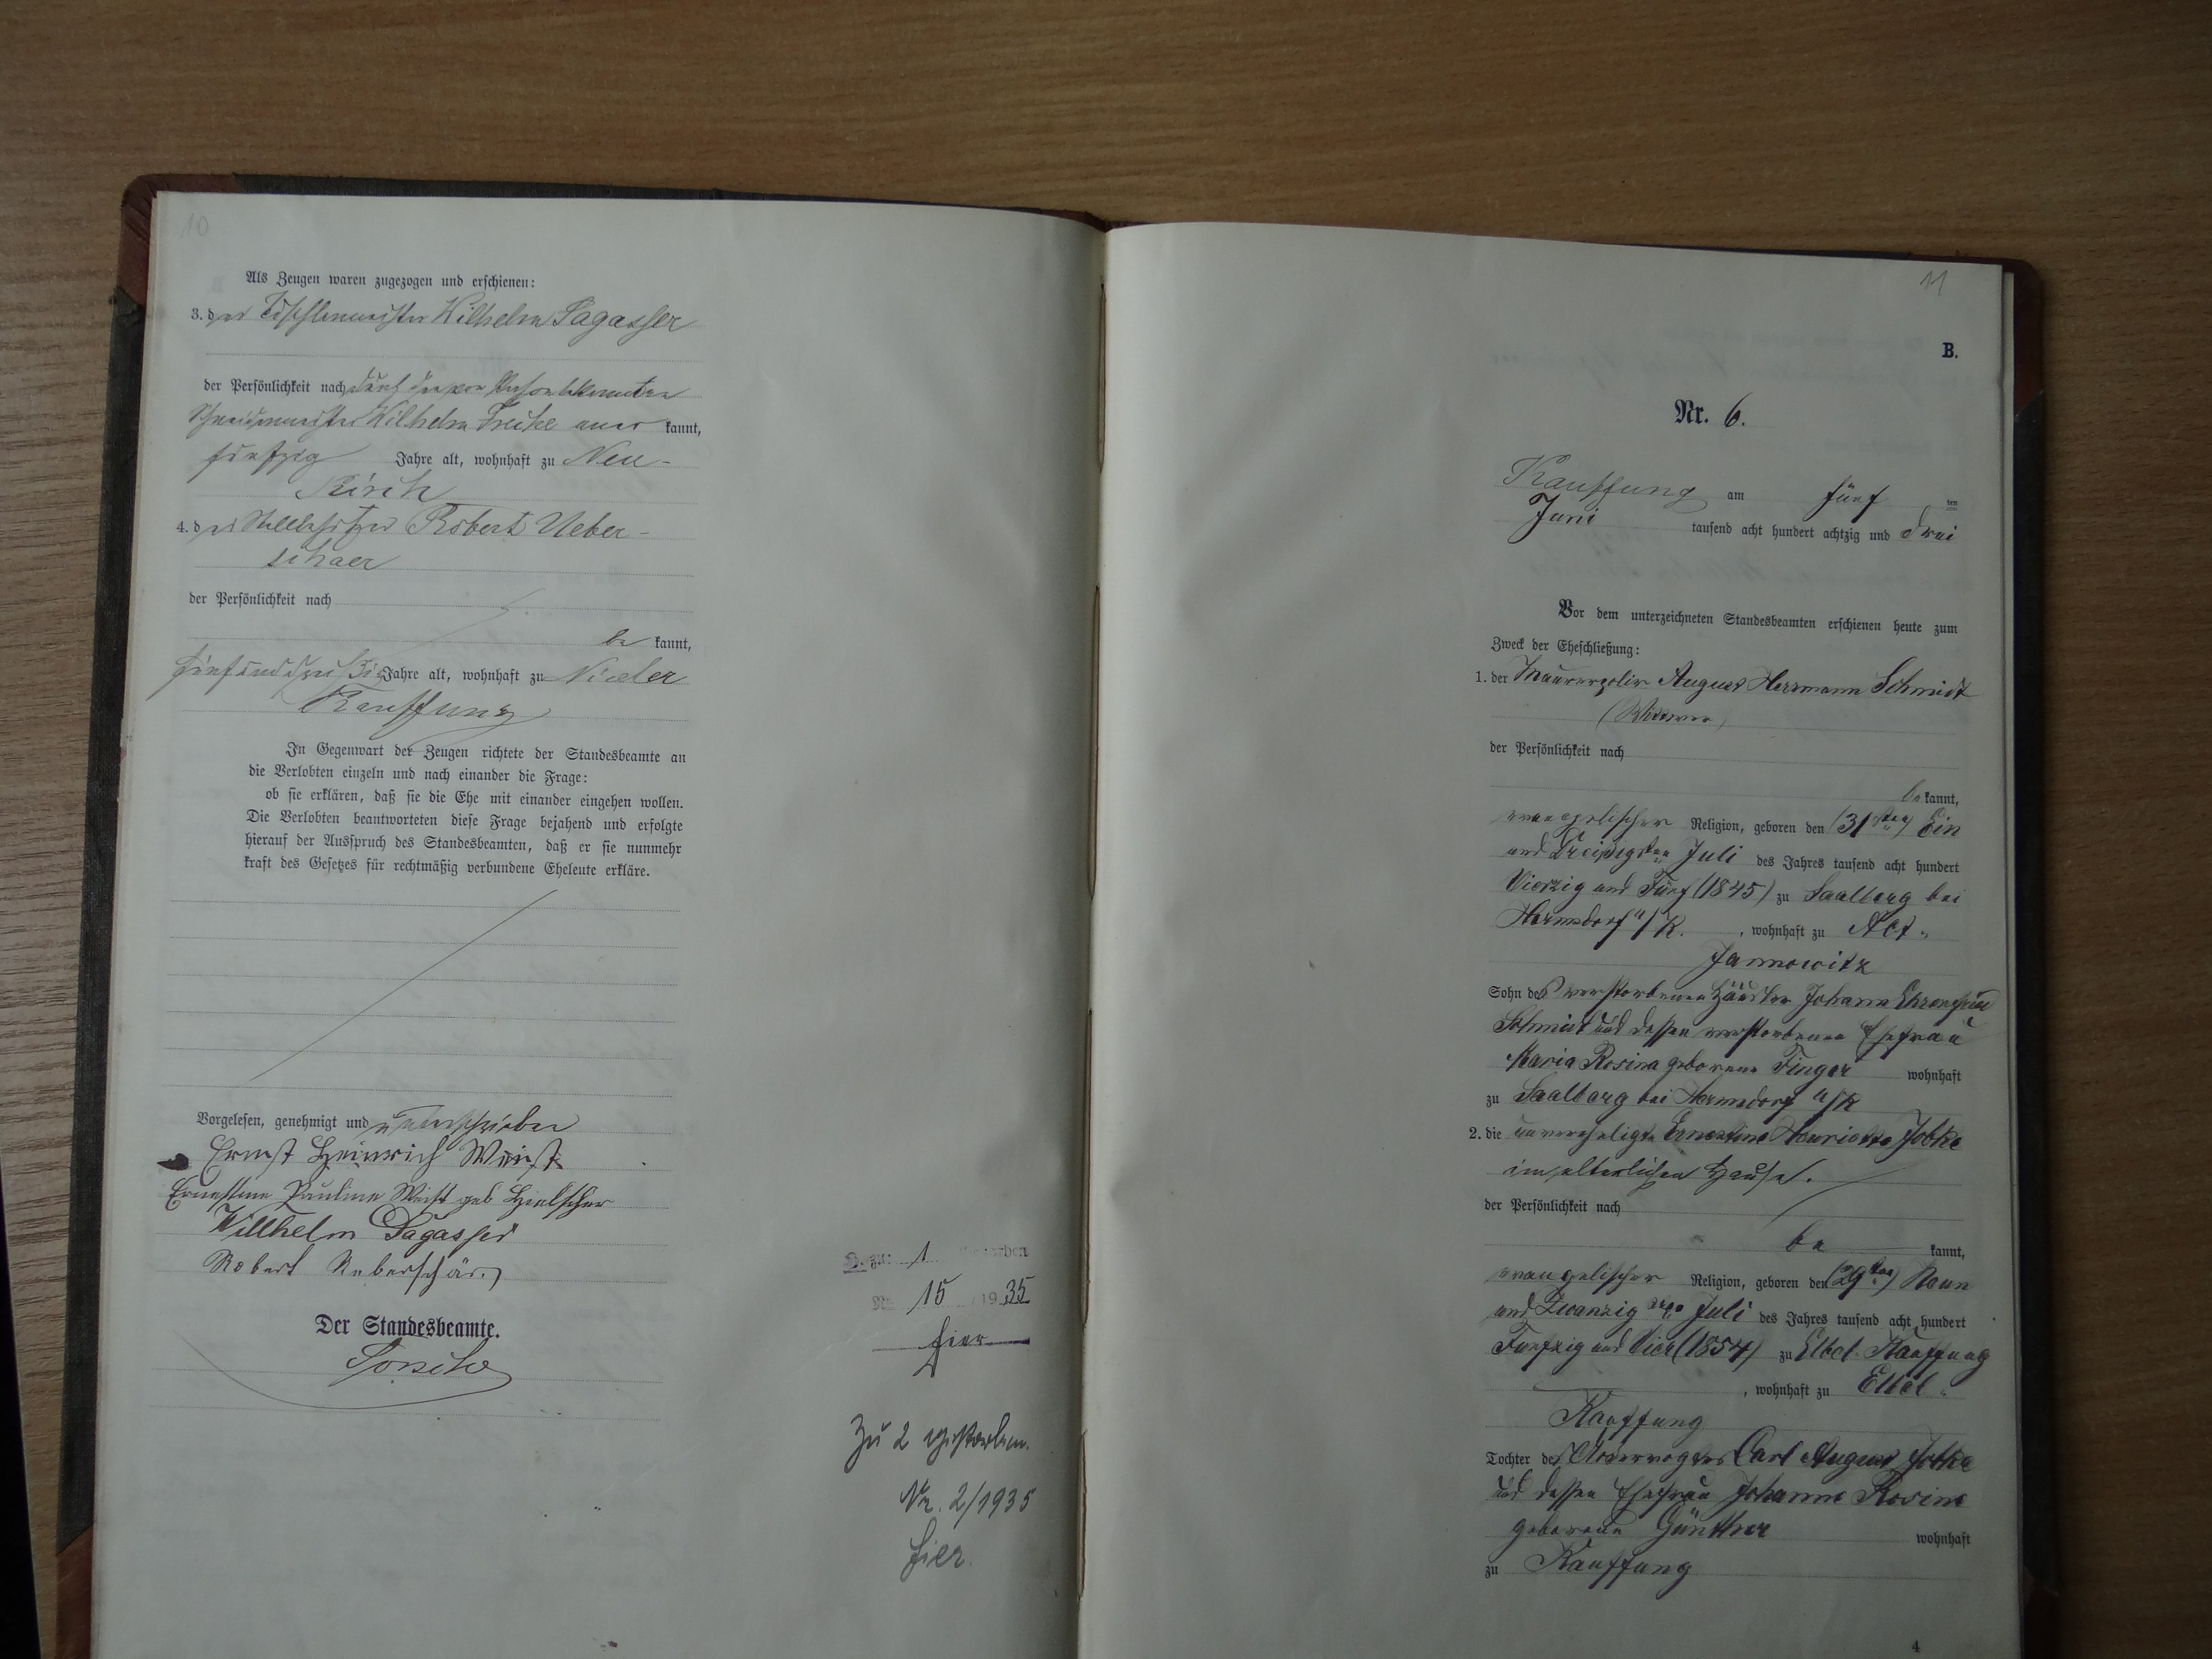 10
Als Zeugen waren zugezogen und erschienen:
3. der Tischlermeister Wilhelm Sagasser
der Persönlichkeit nach durch den von Person bekannten
Schneidermeister Wilhelm Freche aner kannt,
fünfzig Jahre alt, wohnhaft zu Neu-
kirch
4. der Stellbesitzer Robert Ueber-
schaer
der Persönlichkeit nach
be kannt,
fünfunddreißig Jahre alt, wohnhaft zu Nieder
Kauffung
In Gegenwart der Zeugen richtete der Standesbeamte an
die Verlobten einzeln und nach einander die Frage:
ob sie erklären, daß sie die Ehe mit einander eingehen wollen.
Die Verlobten beantworteten diese Frage bejahend und erfolgte
hierauf der Ausspruch des Standesbeamten, daß er sie nunmehr
kraft des Gesetzes für rechtmäßig verbundene Eheleute erkläre.
Vorgelesen, genehmigt und unterschrieben
Ernst Heinrich Weist
Ernestine Pauline Weist geb Hielscher
Willhelm Sagasser
Robert Ueberschär.
Der Standesbeamte.
zu: 1
Nr. 15 19 35
hier
Zu 2 gestorben.
Nr. 2/1935
hier.
11
B.
Nr. 6.
Kauffung am fünf ten
Juni tausend acht hundert achtzig und drei
Vor dem unterzeichneten Standesbeamten erschienen heute zum
Zweck der Eheschließung:
1. der Maurerpolir August Herrmann Schmidt
(Wittwer)
der Persönlichkeit nach
be kannt,
evangelischer Religion, geboren den (31sten) Ein
und Dreißigsten Juli des Jahres tausend acht hundert
Vierzig und Fünf (1845) zu Saalberg bei
Hermsdorf u/K. , wohnhaft zu Alt-
Jannowitz
Sohn des verstorbenen Häusler Johann Ehrenfried
Schmidt und dessen verstorbenen Ehefrau
Maria Rosina geborene Finger wohnhaft
zu Saalberg bei Hermsdorf u/K
2. die unverehelichte Ernestine Henriette Jobke
im elterlichen Hause.
der Persönlichkeit nach
be kannt,
evangelischer Religion, geboren den (29ten) Neun
und Zwanzigsten Juli des Jahres tausend acht hundert
Funfzig und Vier (1854) zu Elbel Kauffung
, wohnhaft zu Elbel-
Kauffung
Tochter des Ackervogtes Carl August Jobke
und dessen Ehefrau Johanne Rosine
geborene Günther wohnhaft
zu Kauffung
4